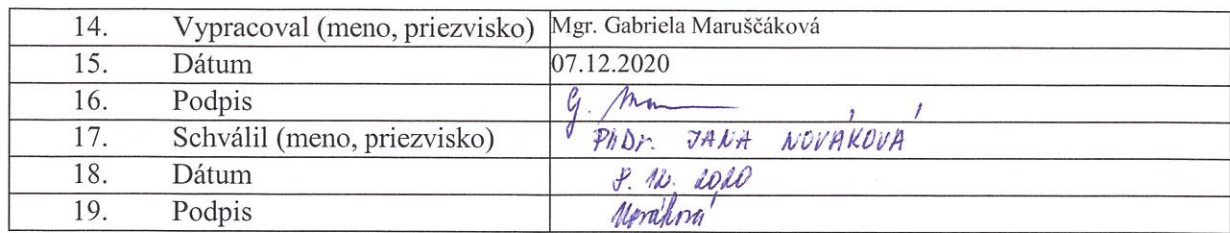 14. Vypracoval (meno, priezvisko) Mgr. Gabriela Maruščáková
15. Dátum 07.12.2020
16. Podpis G.
17. Schválil (meno, priezvisko) PhDr. JANA NOVÁKOVÁ
18. Dátum 8. 12. 2020
19. Podpis Nováková